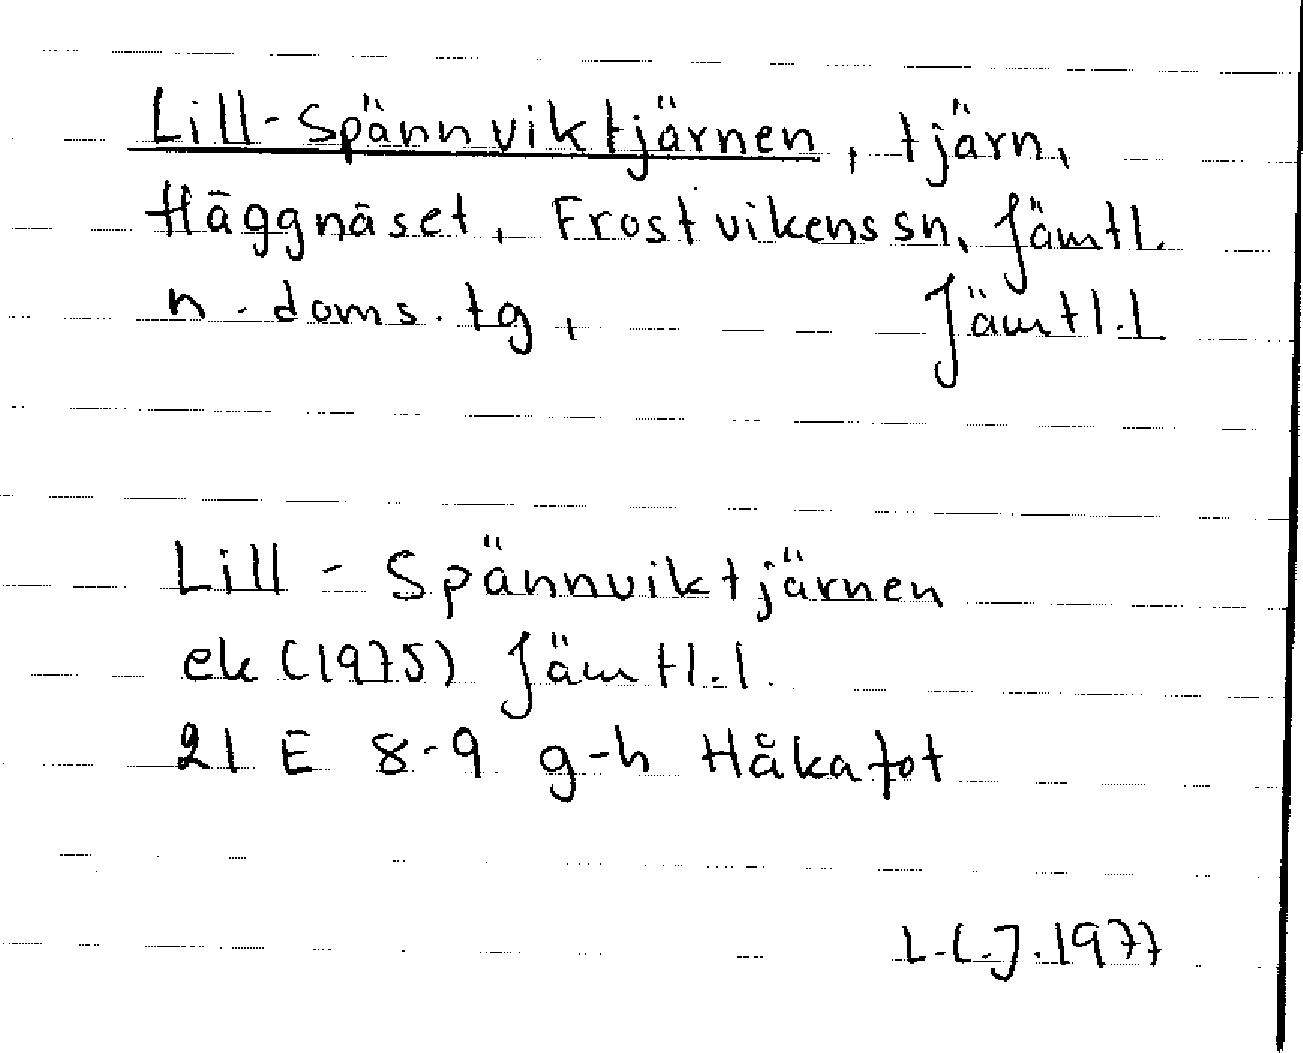 Lill-Spännviktjärnen, tjärn,
Häggnäset, Frostvikens sn, Jämtl.
n. doms. tg, Jämtl. l
Lill-Spännviktjärnen
ek (1975) Jämtl. l.
21 E 8-9 g-h Håkafot
L.L.J. 1977